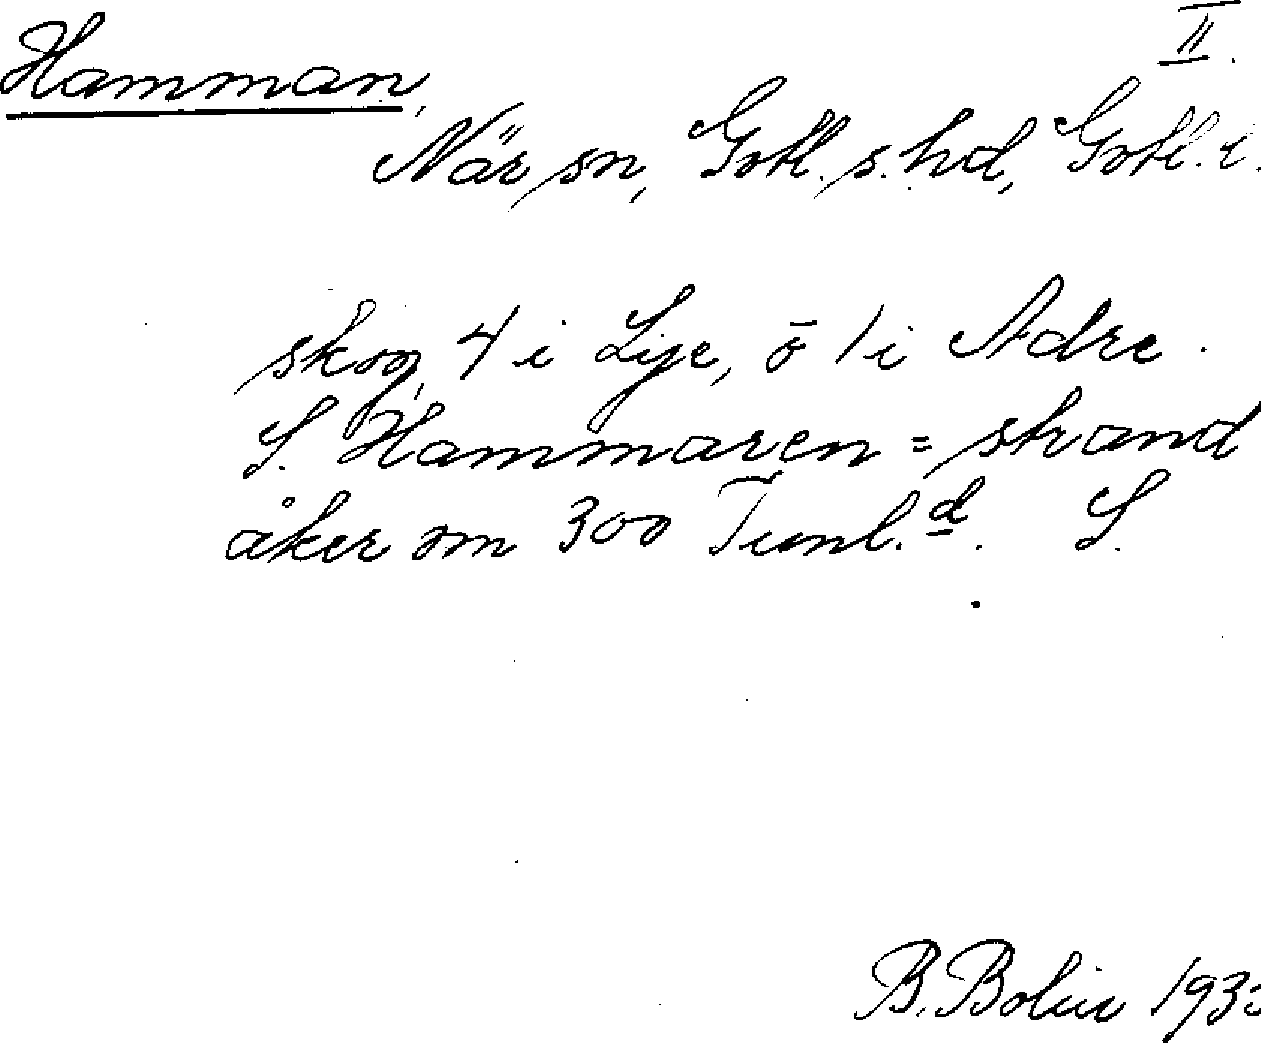 Hamman, II.
När sn, Gotl. s. hd, Gotl. l.
skog, 4 i Lye, ö 1 i Ardre.
S. Hammaren = strand
åker om 300 Tunl.d. S.
B. Bolin